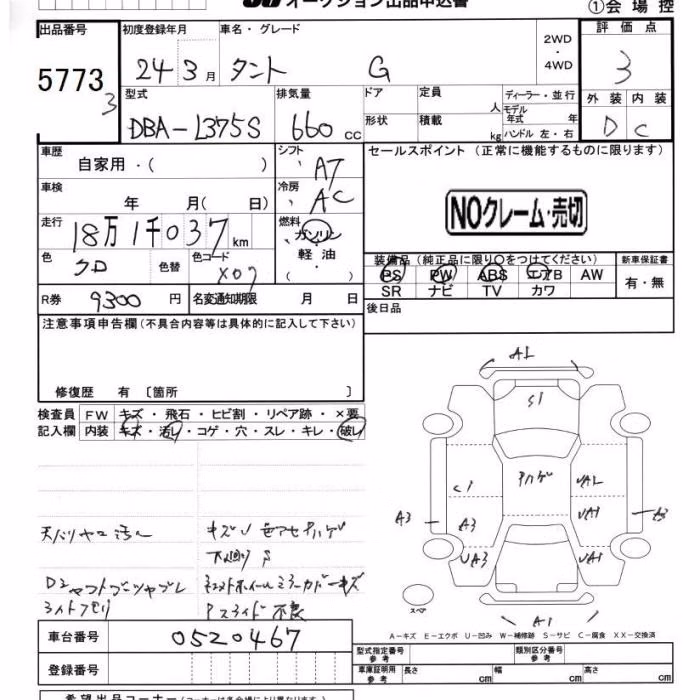 オークション出品申込書
①会場控
出品番号
5773
3
初度登録年月
24 3月
車名・グレード
タント G
2WD
・
4WD
評価点
3
外装 内装
D C
型式
DBA-L375S
排気量
660 cc
ドア
形状
定員 人
積載 kg
ディーラー・並行
モデル
年式 年
ハンドル 左・右
車歴
自家用・( )
シフト
AT
車検
年 月( 日)
冷房
AC
走行
18万1千037 km
燃料
ガソリン
・
軽油
( )
色
クロ
色替
色コード
X07
R券
9300 円
名変通知期限 月 日
セールスポイント(正常に機能するものに限ります)
NOクレーム・売切
装備品(純正品に限り○をつけてください)
新車保証書
PS PW ABS エアB AW
有・無
SR ナビ TV カワ
後日品
注意事項申告欄(不具合内容等は具体的に記入して下さい)
修復歴 有〔箇所 〕
検査員 FW キズ・飛石・ヒビ割・リペア跡・×要
記入欄 内装 キズ・汚レ・コゲ・穴・スレ・キレ・破レ
下廻りS
ミラーカバーキズ
Pスライド不良
A1
S1
ハゲ
C1
UA1
A3
A3
UA1
A3
UA3
UA1
スペア
A1
A-キズ E-エクボ U-凹み W-補修跡 S-サビ C-腐食 XX-交換済
車台番号
0520467
登録番号
型式指定番号
参考
類別区分番号
参考
車庫証明用
参考
長さ cm
幅 cm
高さ cm
希望出品コーナー